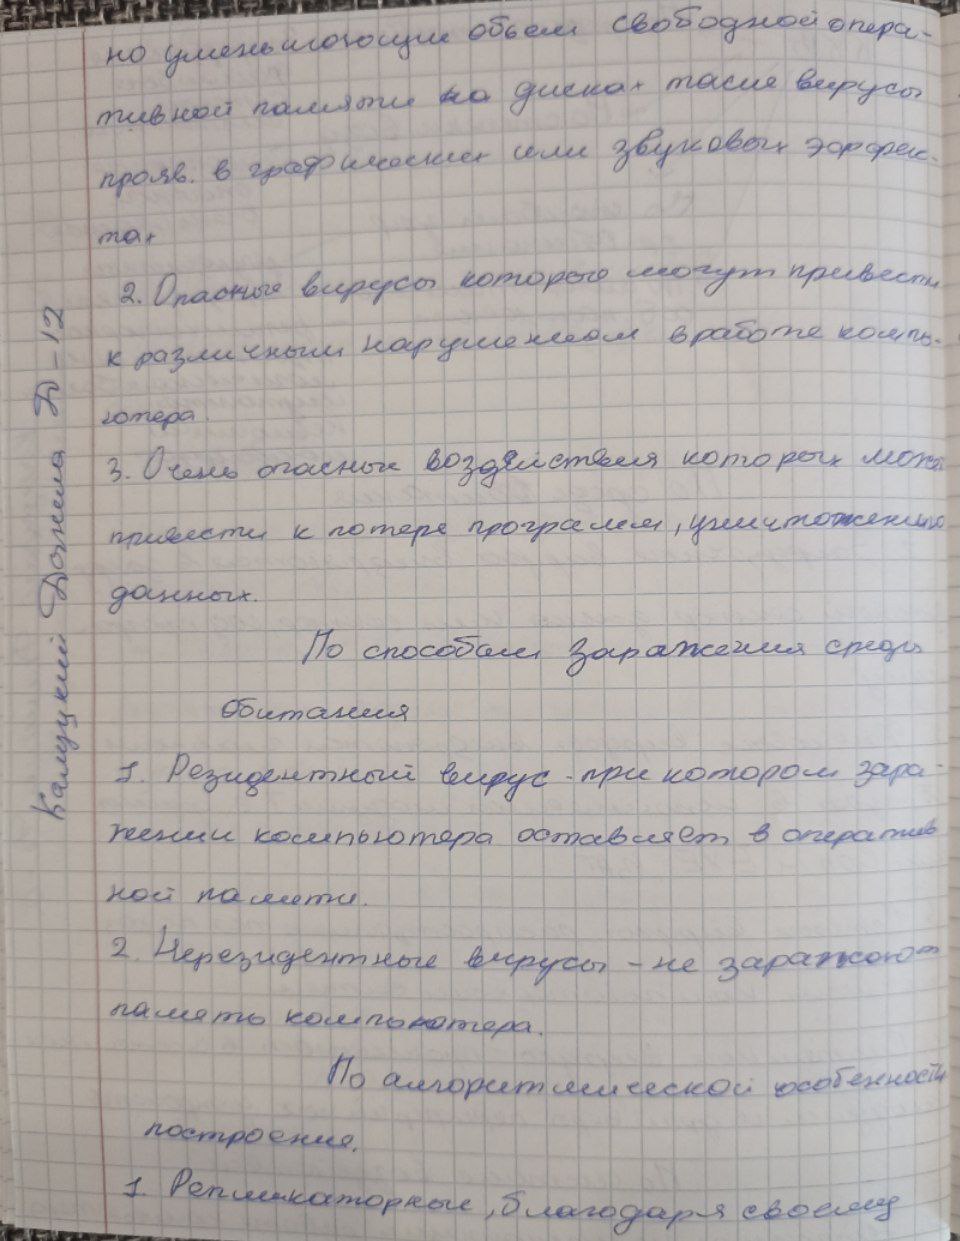 но уменьшающие объем свободной опера-
тивной памяти на дисках такие вирусы
прояв. в графических или звуковых эффек-
тах
2. Опасные вирусы которые могут привести
к различным нарушениям в работе компь-
ютера.
3. Очень опасные воздействия которых может
привести к потере программ, уничтожению
данных.
По способам заражения среды
обитания
1. Резидентный вирус - при котором зара-
жении компьютера оставляет в оператив
ной памяти.
2. Нерезидентные вирусы - не заражают
память компьютера.
По алгоритмической особенности
построения.
1. Репликаторные, благодаря своему
Д-12